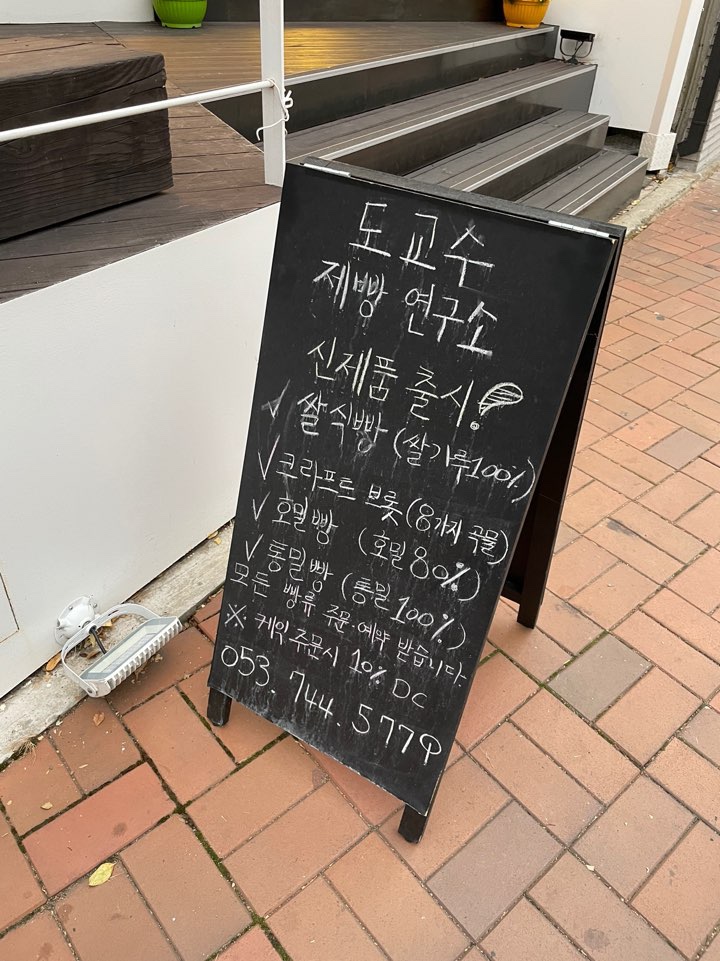 도교수
제빵 연구소
신제품 출시!
✓ 쌀식빵 (쌀가루100%)
✓ 크라프트 브롯 (8가지 곡물)
✓ 호밀빵 (호밀 80%)
✓ 통밀빵 (통밀 100%)
모든 빵류 주문·예약 받습니다.
※ 케익 주문시 10% DC
053. 744. 5779